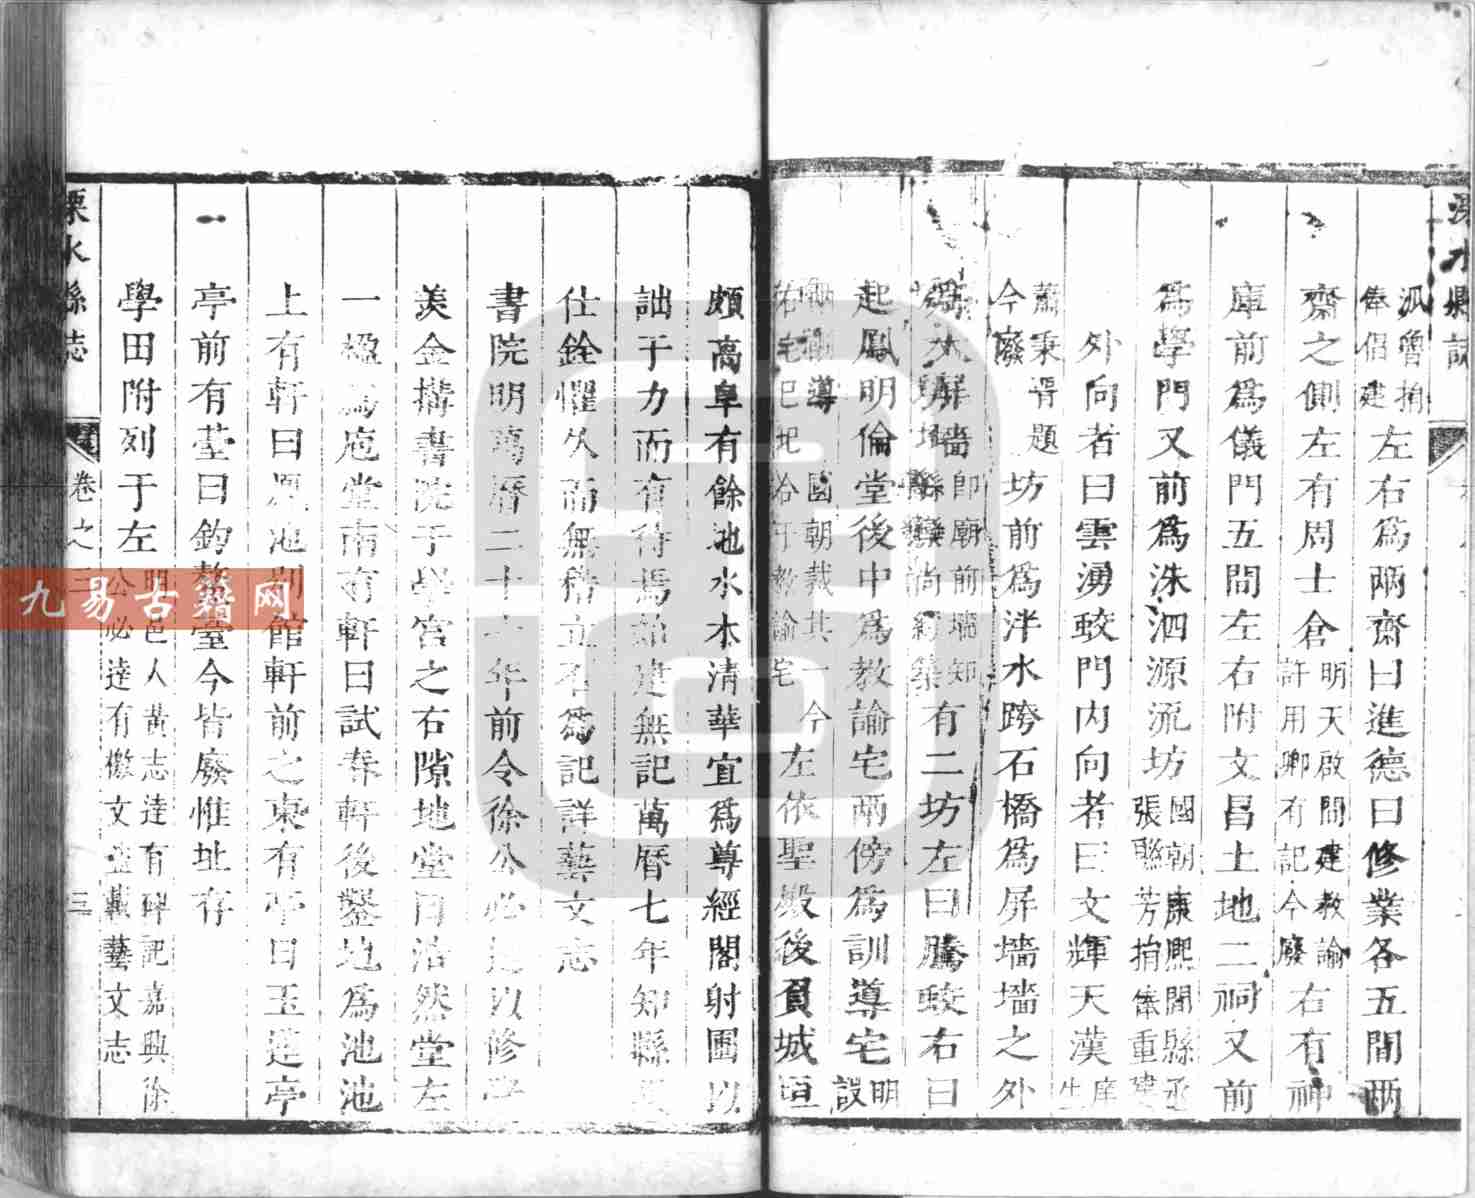 派曾捐俸倡建左右為兩齋曰進德曰修業各五間兩
齋之側左有周士倉明天啟間建教諭許用卿有記今廢右有神
庫前為儀門五間左右附文昌土地二祠又前
為學門又前為洙泗源流坊國朝康熙間縣丞張聯芳捐俸重建
外向者曰雲湧蛟門內向者曰文輝天漢庠生
蕭秉晋題今廢坊前為泮水跨石橋為屏墻墻之外
為大屏墻即廟前墻知有二坊左曰騰蛟右曰
起鳳明倫堂後中為教諭宅兩傍為訓導宅明設
訓導國朝裁共一今左依聖殿後負城垣
頗高阜有餘地水木清華宜為尊經閣射圃以
詘于力而有待焉始建無記萬曆七年知縣
仕銓懼久而無稽立石為記詳藝文志
書院明萬曆二十七年前令徐公必達以修學
羨金搆書院于學宮之右隙地堂曰浩然堂左
一楹為庖堂南有軒曰試春軒後鑿地為池池
上有軒曰 池別館軒前之東有亭曰玉蓮亭
亭前有臺曰釣鰲臺今皆廢惟址存
學田附列于左明邑人黃志達有碑記嘉興徐公必達有檄文並載藝文志
溧水縣志
卷之三
三
九易古籍网